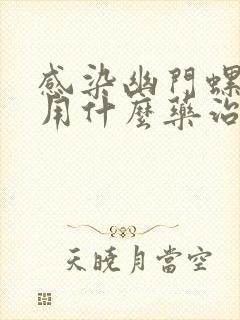 感染幽門螺
用什麼藥治
天曉月當空